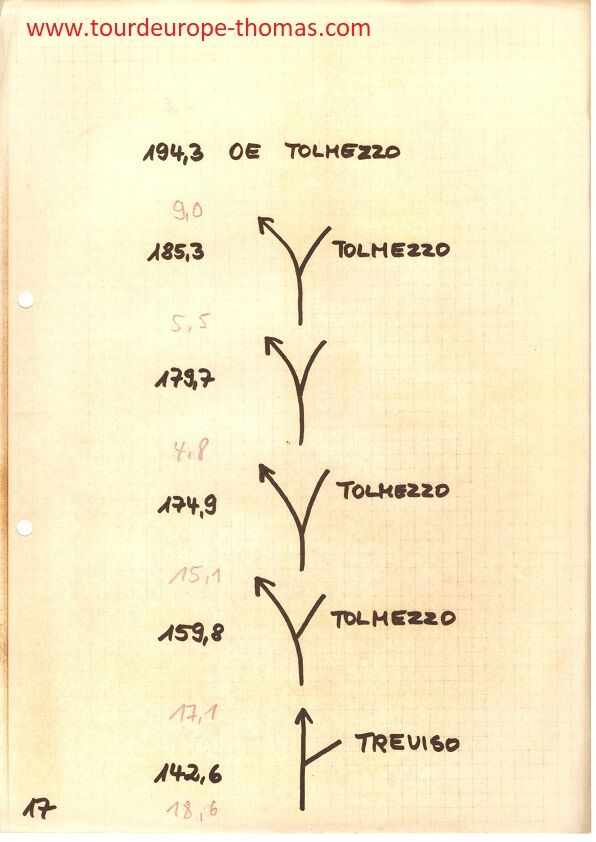 www.tourdeurope-thomas.com
194,3 OE TOLMEZZO
9,0
185,3 TOLMEZZO
5,5
179,7
4,8
174,9 TOLMEZZO
15,1
159,8 TOLMEZZO
17,1
TREVISO
142,6
17 18,6